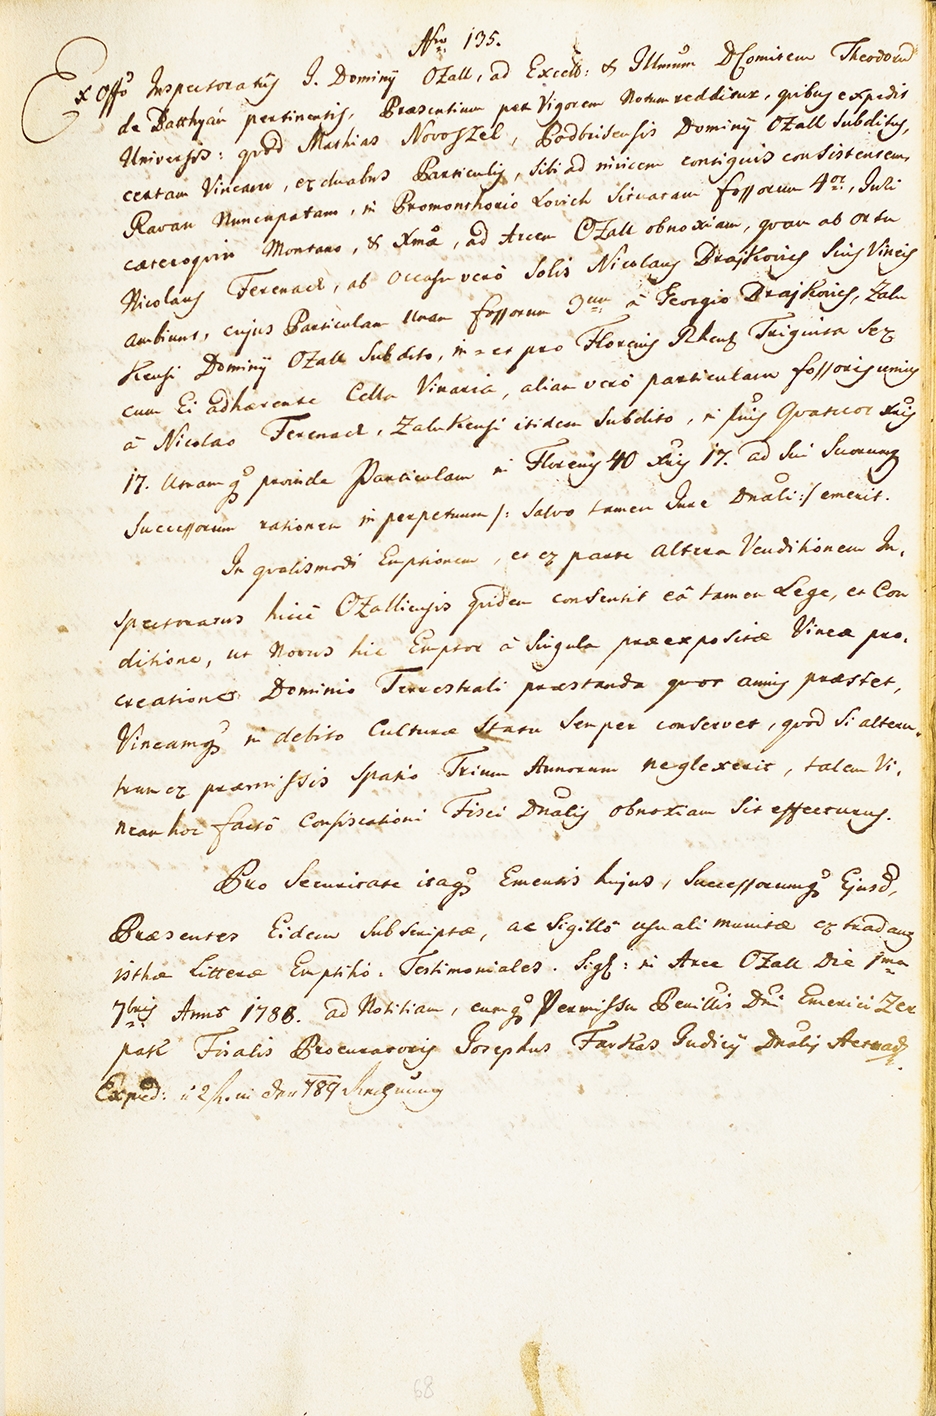 Nro 135.
Ex Offo Inspectoratus I. Dominij Ozall, ad Excell: & Illmum D Comitem Theodorum
de Batthyán pertinentis, Præsentium per Vigorem Notum redditur, quibus expedit
Universis: quod Mathias Novoszel, Podbrisensis Dominij Ozall Subditus,
certam Vineam, ex duabus Particulis, sibi ad invicem contiguis consistentem,
Ravan Nuncupatam, in Promonthorio Lovich Situatam fossorum 4or, Juri
cæteroquin Montano, & Xmæ, ad Arcem Ozall obnoxiam, quam ab ortu
Nicolaus Ferenack, ab Occasu verò Solis Nicolaus Drajkovics Suis Vineis
ambiunt, cujus Particulam unam fossorum 3um à Georgio Drajkovics, Zalu
Kensi Dominij Ozall Subdito, in- et pro Florenis Rhens Triginta Sex
cum Ei adhærente Cella Vinaria, aliam verò particulam fossoris unius
à Nicolao Ferenack, Zalukensi itidem Subdito, in flnis Quatuor xris
17. Utramq proinde Particulam in Florenis 40 xris 17. ad Sui Suorumq
Successorum rationem in perpetuum /: Salvo tamen Jure Dnali :/ emerit.
In qualismodi Emptionem, et ex parte altera Venditionem In-
spectoratus hicce Ozalliensis quidem consentit eâ tamen Lege, et Con
ditione, ut Novus hic Emptor à Singula præexpositæ Vineæ pro-
creatione Dominio Terrestrali præstanda quot annis præstet,
Vineamq in debito Culturæ Statu Semper conservet, quod Si alteru-
trum ex præmissis Spatio Trium Annorum neglexerit, talem Vi-
neam hoc facto Confiscationi Fisci Dnalis obnoxiam Sit effecturus.
Pro Securitate itaq Ementis hujus, Successorumq Ejusd,
Præsentes Eidem Subscriptæ, ac Sigillo usuali munitæ extradantur
isthæ Litteræ Emptitio-Testimoniales. Sigl: in Arce Ozall Die 1ma
7bris Anno 1788. ad Notitiam, cumq Permissu Penillis Dni Emerici Zer
pak Fiscalis Procuratoris Josephus Farkas Judicij Dnalis Actua
Exped:
68